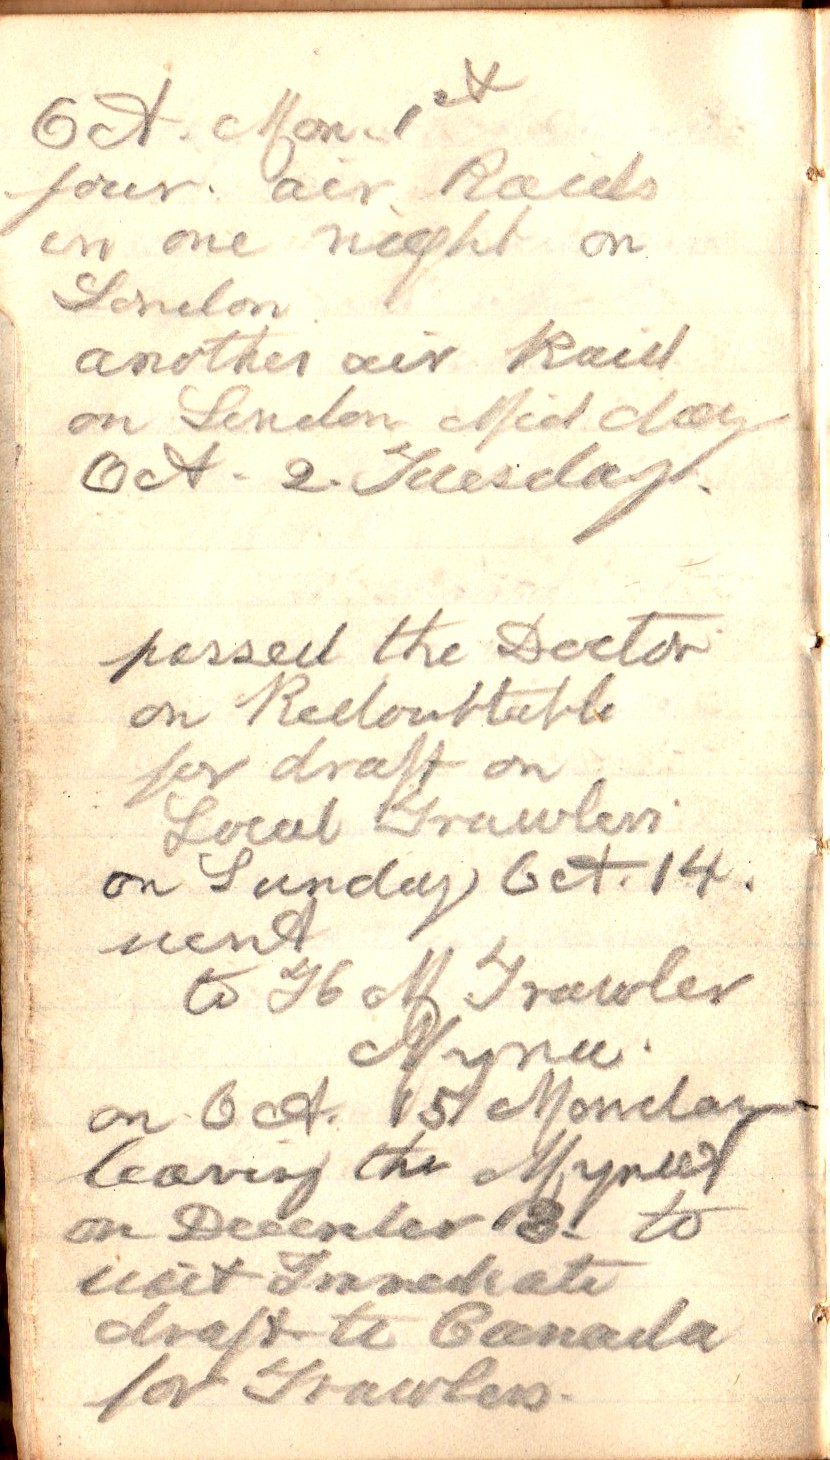 Oct. Mon. 1st
four. air Raids
in one night on
London
another air Raid
on London Mid day
Oct - 2. Tuesday.
passed the Doctor
on Redoubtable
for draft on
Local Trawlers
on Sunday Oct. 14.
went
to H M Trawler
Myna.
on Oct. 15 Monday
leaving the
on December 3. to
wait Immediate
draft to Canada
for Trawlers.